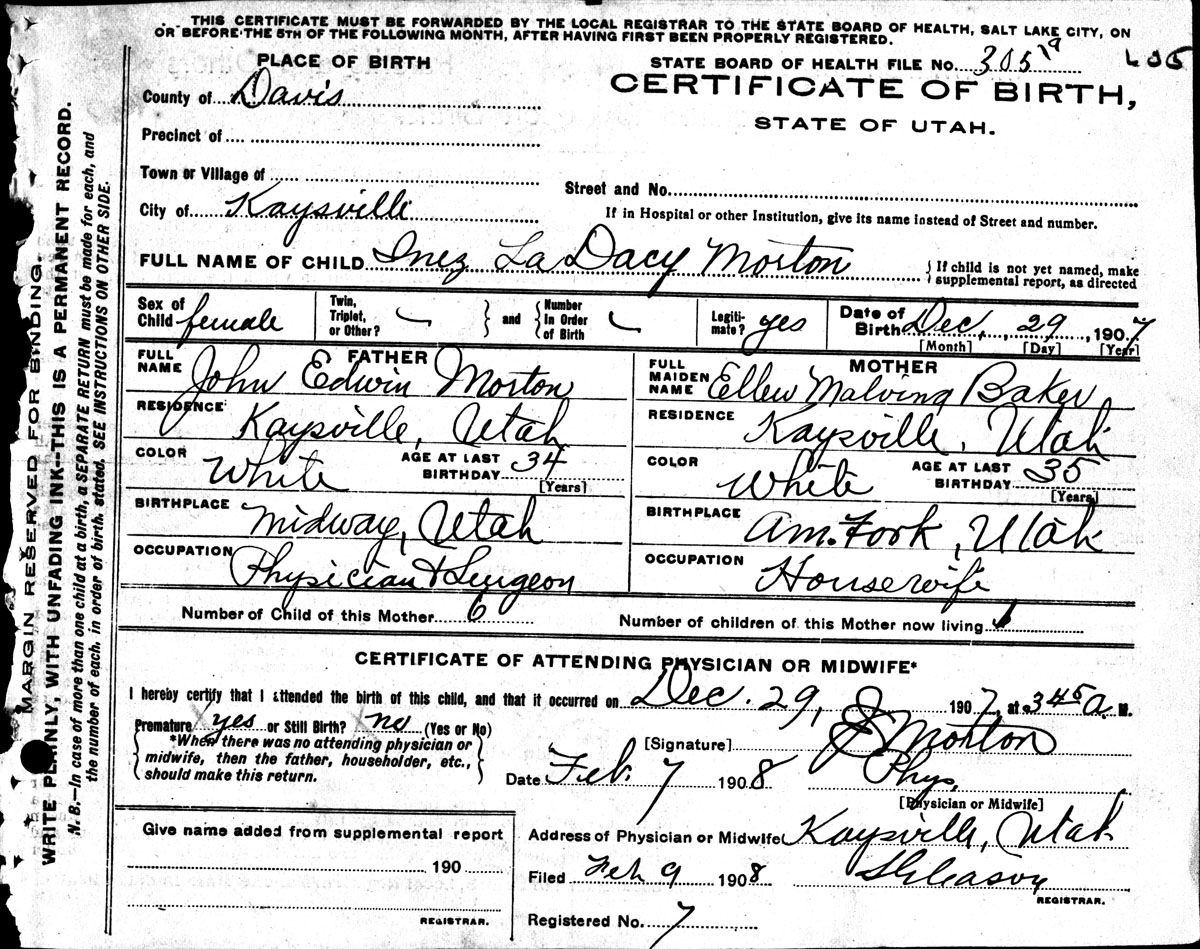 THIS CERTIFICATE MUST BE FORWARDED BY THE LOCAL REGISTRAR TO THE STATE BOARD OF HEALTH, SALT LAKE CITY, ON
OR BEFORE THE 5TH OF THE FOLLOWING MONTH, AFTER HAVING FIRST BEEN PROPERLY REGISTERED.
PLACE OF BIRTH
STATE BOARD OF HEALTH FILE No. 305
CERTIFICATE OF BIRTH,
STATE OF UTAH.
County of Davis
Precinct of
Town or Village of
Street and No.
City of Kaysville
If in Hospital or other Institution, give its name instead of Street and number.
FULL NAME OF CHILD Inez La Dacy Morton
{ If child is not yet named, make
supplemental report, as directed
Sex of Child female
Twin, Triplet, or Other?
} and {
Number In Order of Birth
Legiti- mate? yes
Date of Birth Dec. 29, 1907
[Month] [Day] [Year]
FATHER
FULL NAME John Edwin Morton
RESIDENCE Kaysville, Utah
COLOR White AGE AT LAST BIRTHDAY 34
[Years]
BIRTHPLACE Midway, Utah
OCCUPATION Physician & Surgeon
MOTHER
FULL MAIDEN NAME Ellen Malving Baker
RESIDENCE Kaysville, Utah
COLOR White AGE AT LAST BIRTHDAY 35
[Years]
BIRTHPLACE Am. Fork, Utah
OCCUPATION Housewife
Number of Child of this Mother 6
Number of children of this Mother now living
CERTIFICATE OF ATTENDING PHYSICIAN OR MIDWIFE*
I hereby certify that I attended the birth of this child, and that it occurred on Dec. 29, 1907, at 345 a. M.
Premature yes or Still Birth? no (Yes or No)
*When there was no attending physician or
midwife, then the father, householder, etc.,
should make this return.
[Signature] Morton
Date Feb. 7 1908 Phys.
[Physician or Midwife]
Give name added from supplemental report
190
REGISTRAR.
Address of Physician or Midwife Kaysville, Utah
Filed Feb 9 1908 Gleason
REGISTRAR.
Registered No. 7
MARGIN RESERVED FOR BINDING.
WRITE PLAINLY, WITH UNFADING INK--THIS IS A PERMANENT RECORD.
N. B.—In case of more than one child at a birth, a SEPARATE RETURN must be made for each, and
the number of each, in order of birth, stated. SEE INSTRUCTIONS ON OTHER SIDE.